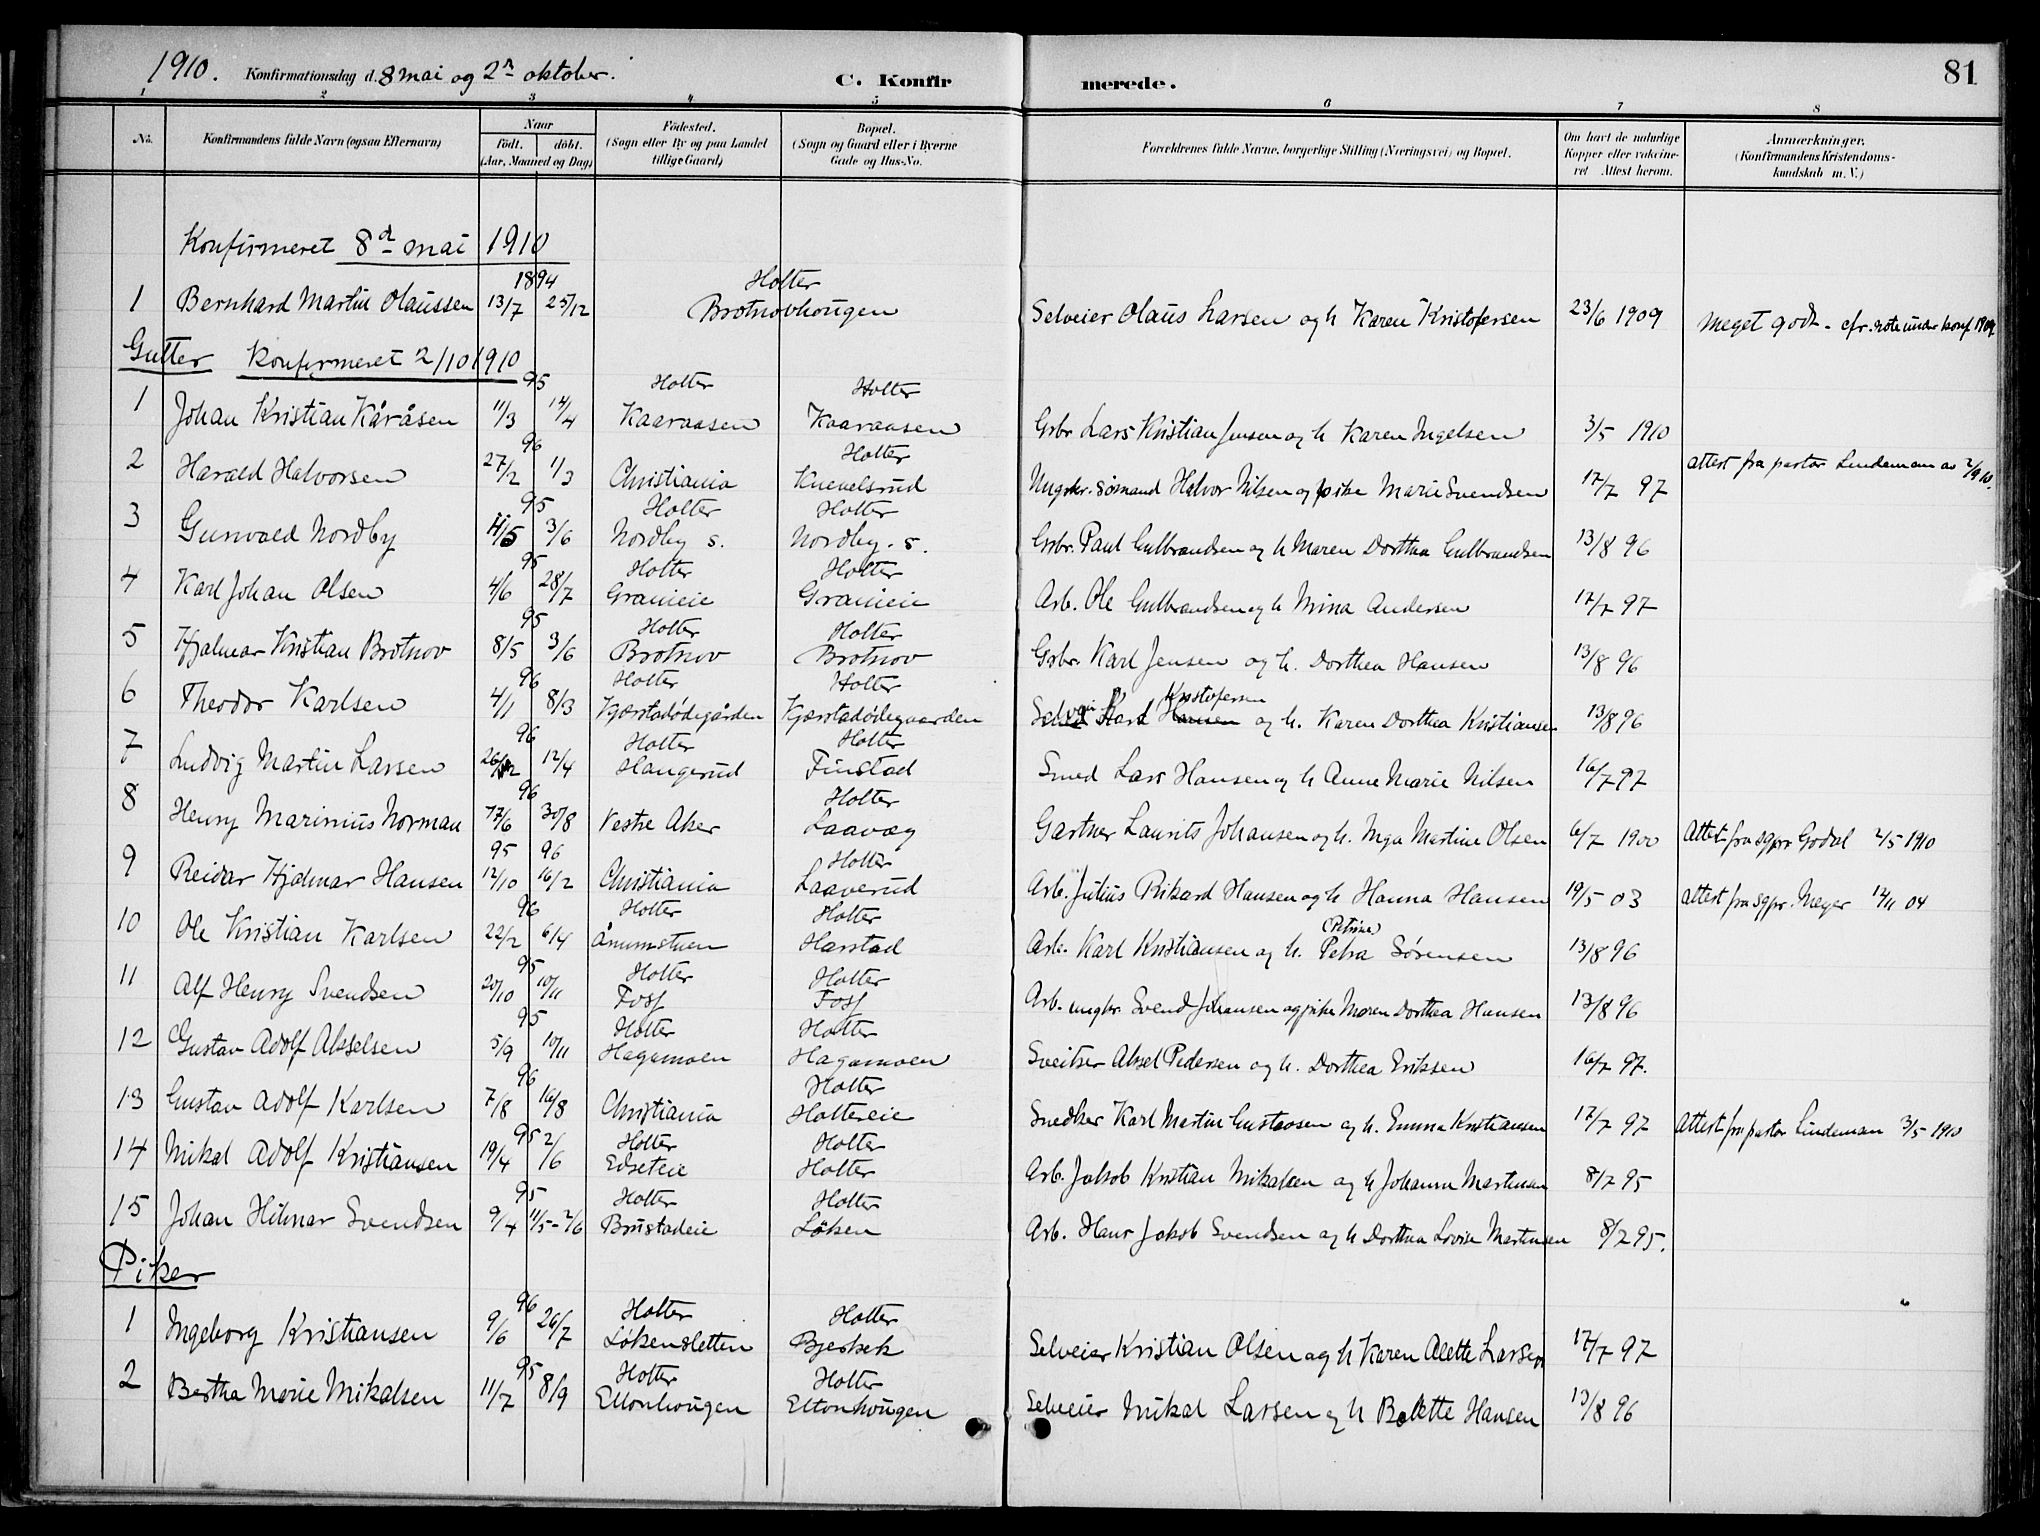 1910. Konfirmationsdag d. 8 mai og 2n oktober. C. Konfirmerede. 81
1 2 3 4 5 6 7 8
No. Konfirmandens fulde Navn (ogsaa Efternavn) Naar födt. döbt. (Aar, Maaned og Dag) Födested. (Sogn eller By og paa Landet tillige Gaard) Bopæl. (Sogn og Gaard eller i Byerne Gade og Hus-No. Forældrenes fulde Navne, borgerlige Stilling (Næringsvei) og Bopæl. Om havt de naturlige Kopper eller vakcineret Attest herom. Anmærkninger. (Konfirmandens Kristendomskundskab m. V.)
Konfirmeret 8d mai 1910
1894 Holter
1 Bernhard Martin Olaussen 13/7 25/12 Brotnovhougen Selveier Olaus Larsen og h Karen Kristofersen 23/6 1909 Meget godt - cfr. note under konf 1909
Gutter Konfirmeret 2/10 1910
95 Holter Holter
1 Johan Kristian Kåråsen 11/3 14/4 Kaaraasen Kaaraasen Grbr Lars Kristian Jensen og h Karen Ingelsen 3/5 1910
96 Holter
2 Harald Halvorsen 27/2 1/3 Christiania Knevelsrud Ungkr. sømand Halvor Nilsen og pike Marie Svendsen 17/7 97 attest fra pastor Lindeman av 2/9 10.
95 Holter Holter
3 Gunvald Nordby 11/5 3/6 Nordby s. Nordby. s. Grbr. Paul Gulbrandsen og h Maren Dorthea Gulbrandsen 13/8 96
95 Holter Holter
4 Karl Johan Olsen 4/6 28/7 Granieie Granieie Arb. Ole Gulbrandsen og h Mina Andersen 17/7 97
95 Holter Holter
5 Hjalmar Kristian Brotnov 8/5 3/6 Brotnov Brotnov Grbr. Karl Jensen og h. Dorthea Hansen 13/8 96
96 Holter Holter Kristofersen
6 Theodor Karlsen 4/1 8/3 Kjærstadødegården Kjærstadødegaarden Selvei Karl Hansen og h. Karen Dorthea Kristiansen 13/8 96
96 Holter Holter
7 Ludvig Martin Larsen 26/2 12/4 Haugerud Finstad Smed Lars Hansen og h Anne Marie Nilsen 16/7 97
96 Holter
8 Henry Marinius Norman 17/6 30/8 Vestre Aker Laavæg Gartner Laurits Johansen og h. Inga Martine Olsen 6/7 1900 Attest fra sgpr Godal 2/5 1910
95 96 Holter
9 Reidar Hjalmar Hansen 12/10 16/2 Christiania Laaverud Arb. Julius Rikard Hansen og h Hanna Hansen 19/5 03 attest fra sgpr. Meyer 14/11 04
96 Holter Holter (Petrine)
10 Ole Kristian Karlsen 22/2 6/4 Ånumstuen Harstad Arb. Karl Kristiansen og h. Petra Sørensen 13/8 96
95 Holter Holter
11 Alf Henry Svendsen 20/10 10/11 Foss Foss Arb. ungkr. Svend Johansen og pike Maren Dorthea Hansen 13/8 96
95 Holter Holter
12 Gustav Adolf Akselsen 5/9 10/11 Hagamoen Hagamoen Sveitser Aksel Pedersen og h. Dorthea Eriksen 16/7 97.
96 Holter
13 Gustav Adolf Karlsen 7/8 16/8 Christiania Holtereie Snedker Karl Martin Gustavsen og h. Emma Kristiansen 17/7 97 Attest fra pastor Lindeman 3/5 1910
95 Holter Holter
14 Mikal Adolf Kristiansen 19/4 2/6 Edseteie Holter Arb. Jakob Kristian Mikalsen og h Johanne Martinsen 8/7 95
95 Holter Holter
15 Johan Hilmar Svendsen 9/4 11/5-2/6 Brustadeie Løken Arb. Hans Jakob Svendsen og h Dorthea Lovise Martinsen 8/7 95.
Piker
96 Holter Holter
1 Ingeborg Kristiansen 9/6 26/7 Løkensletten Bjerkek Selveier Kristian Olsen og h Karen Alette Larsen 17/7 97
95 Holter Holter
2 Bertha Marie Mikalsen 11/7 8/9 Eltonhougen Eltonhougen Selveier Mikal Larsen og h Bolette Hansen 13/8 96